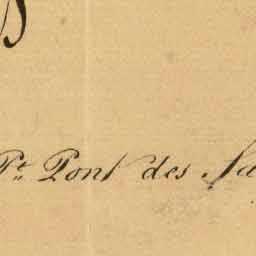 Pt. Pont des